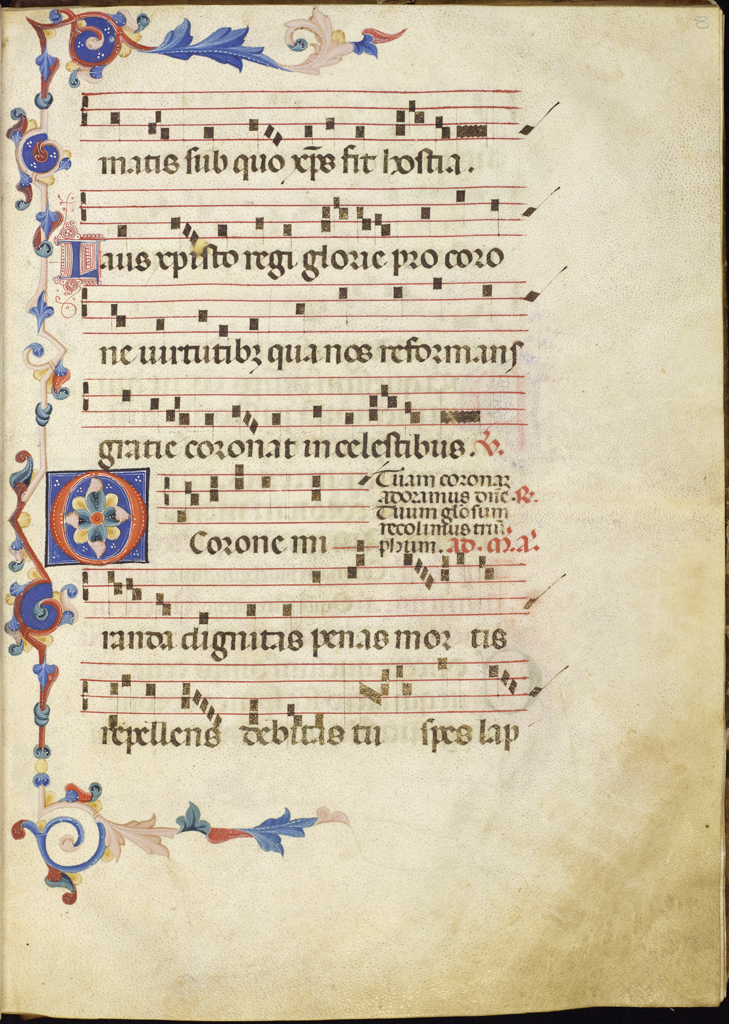 matis sub quo xp̄s fit hostia.
Laus xpisto regi glorie pro coro
ne uirtutibꝫ qua nos reformans
gratie coronat in celestibus. ℣.
O Corone mi
Tuam coronaꝫ
adoramus dn̄e. ℟.
Tuum glosum
recolimus triū
phum. ad. M. a.
randa dignitas penas mor tis
repellens debitas tu spes lap